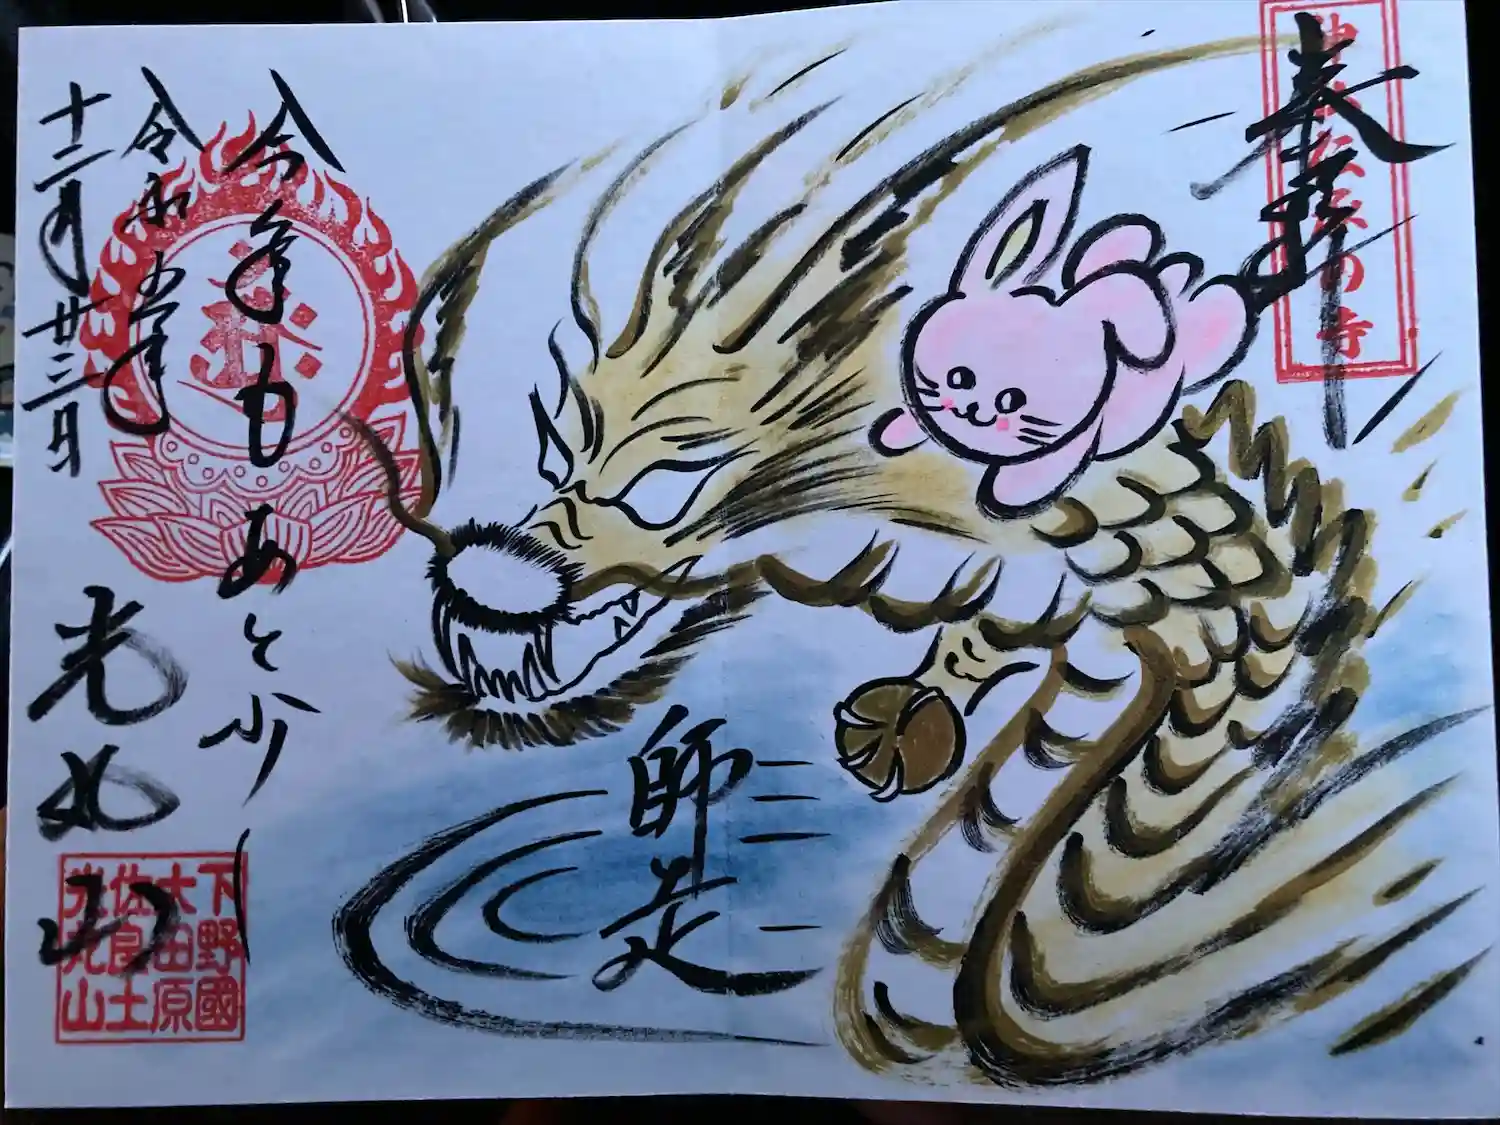 奉拝
の寺
師走
今年もあと少し
令和五年
十二月廿三日
光丸山
下野國
大田原
佐良土
光丸山